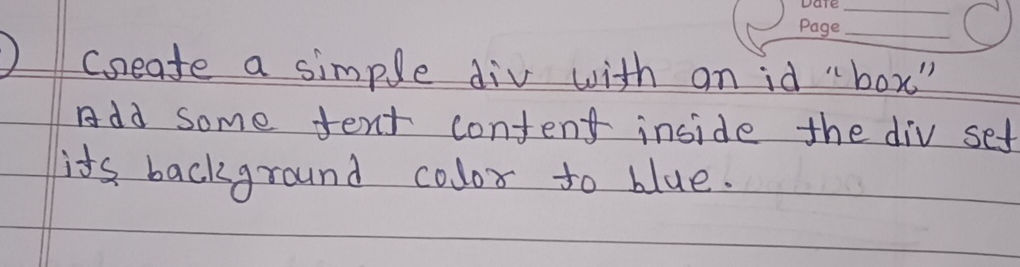 Date
Page
Create a simple div with an id "box"
Add some text content inside the div set
its background color to blue.